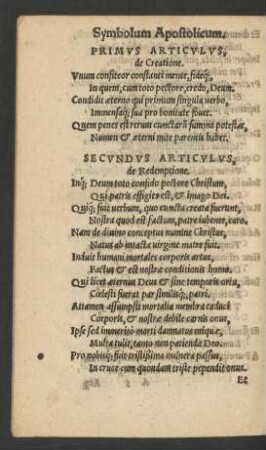 Symbolum Apostolicum.
PRIMVS ARTICVLVS,
de Creatione.
Vnum confiteor constanti mente, fideq;,
In quem, cum toto pectore, credo, Deum.
Condidit æterno qui primum singula verbo,
Immensaq; sua pro bonitate fouet.
Quem penes est rerum cunctarũ summa potestas,
Nomen & æterni mite parentis habet.
SECVNDVS ARTICVLVS,
de Redemptione.
Inq; Deum toto confido pectore Christum,
Qui patris effigies est, & imago Dei.
Quiq; fuit verbum, quo cuncta creata fuerunt,
Nostra quod est factum, patre iubente, caro.
Nam de diuino conceptus numine Christus,
Natus ab intacta virgine matre fuit.
Induit humani mortales corporis artus,
Factus & est nostræ conditionis homo.
Qui licet æternus Deus & sine temporis ortu,
Cœlesti fuerat par similisq; patri.
Attamen assumpsit mortalia membra caduci
Corporis, & nostræ debile carnis onus,
Ipse sed immerito morti damnatus iniquæ,
Multa tulit, tanto non patienda Deo.
Pro nobisq; fuit tristissima vulnera passus,
In cruce cum quondam triste pependit onus.
Et